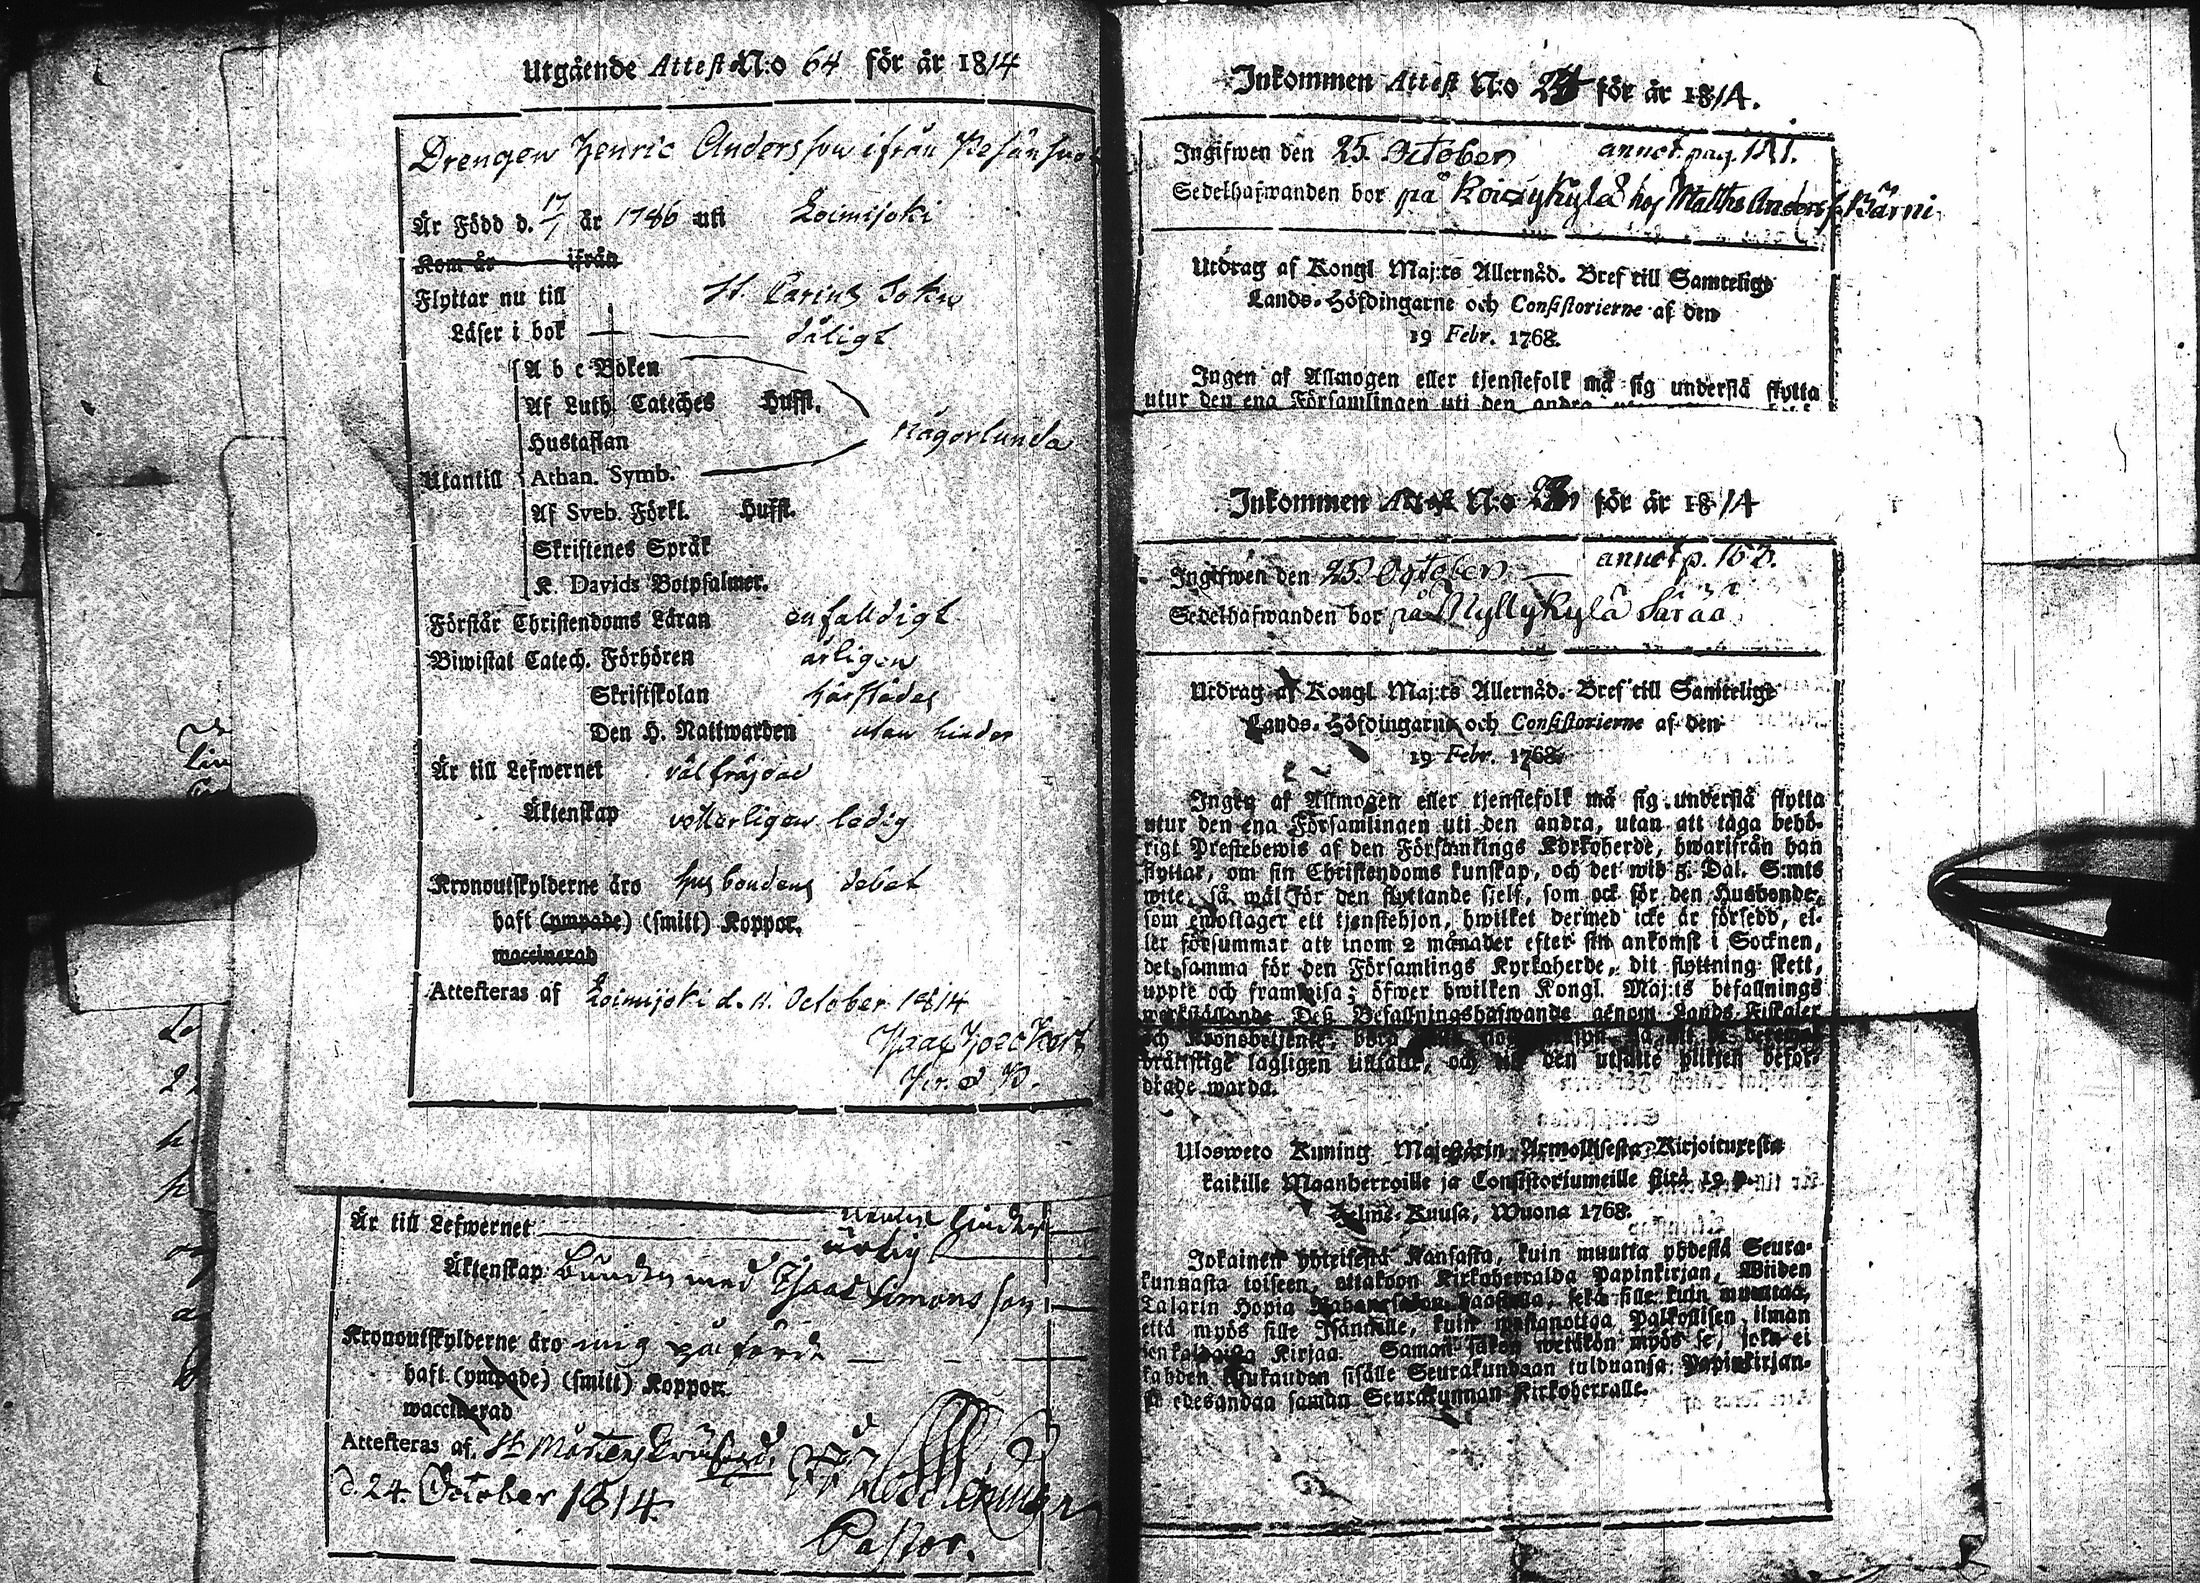 Utgående Attest N:o 64 för år 1814
Drengen Henric Andersson ifrån
Är Född d. 17/1 år 1786 uti Loimijoki
Kom år ifrån
Flyttar nu till St. Carins Sokn
Läser i bok dåligt
A b c Boken
Af Luth. Cateches Hufst.
Hustaflan
någorlunda
Utantill Athan. Symb.
Af Sveb. Förkl. Hufst.
Skriftenes Språk
K. Davids Botpsalmer.
Förstår Christendoms Läran enfalldigt
Biwistat Catech. Förhören årligen
Skriftskolan härstädes
Den H. Nattwarden utan hinder
Är till Lefwernet välfräjdad
Äktenskap vetterligen ledig
Kronoutskylderne äro husbondens debet
haft (ympade) (smitt) Koppor.
waccinerad
Attesteras af Loimijoki d. 11. October 1814
Isaac
Är till Lefwernet
ärlig
Äktenskap Bunden med Isaac Simons son
Kronoutskylderne äro mig påförde
haft (ympade) (smitt) Koppor.
waccinerad
Attesteras af St Mårtens
d. 24. October 1814.
Pastor.
Inkommen Attest N:o för år 1814.
Ingifwen den 25. October annot. pag. 181.
Sedelhafwanden bor på hos Matths Anders s. Kärni
Utdrag af Kongl Maj:ts Allernåd. Bref till Samtelige
Lands-Höfdingarne och Consistorierne af den
19 Febr. 1768.
Ingen af Allmogen eller tjenstefolk må sig understå flytta
utur den ena Församlingen uti den andra
Inkommen Attest N:o för år 1814
Ingifwen den 25. October annot p.
Sedelhafwanden bor på Myllykylä Särää
Utdrag af Kongl Maj:ts Allernåd. Bref till Samtelige
Lands-Höfdingarne och Consistorierne af den
19 Febr. 1768.
Ingen af Allmogen eller tjenstefolk må sig understå flytta
utur den ena Församlingen uti den andra, utan att taga behö-
rigt Prestebewis af den Församlings Kyrkoherde, hwarifrån han
flyttar, om sin Christendoms kunskap, och det wid 5. Dal. S:mts
wite, så wäl för den flyttande sjelf, som ock för den Husbonde,
som emottager ett tjenstehjon, hwilket dermed icke är försedd, el-
ler försummar att inom 2 månader efter sin ankomst i Socknen,
det samma för den Församlings Kyrkoherde, dit flyttning skett,
uppte och framwisa; öfwer hwilken Kongl. Maj:ts befallnings
werkställande Deß Befallningshafwande genom Lands Fiskaler
och Kronobetjente, böra
bräktlige lagligen tilltala, och til den utsatte plikten befor-
drade warda.
Ulosweto Kuning Majestätin Armollisesta Kirjoituxesta
kaikille Maanherroille ja Consistoriumeille siitä 19 p.
Helme-Kuusa, Wuona 1768.
Jokainen yhteisestä Kansasta, kuin muutta yhdestä Seura-
kunnasta toiseen, ottakoon Kirkoherralda Papinkirjan, Wiiden
Talarin Hopia haastolla, sekä sille kuin muuttaa,
että myös sille Isännälle, kuin wastanottaa Palkollisen ilman
senkaltaista Kirjaa. Saman sakon wetäkön myös se, joka ei
kahden Kuukauden sisälle Seurakundaan tulduansa Papinkirjan-
sa edesandaa saman Seurakunnan Kirkoherralle.